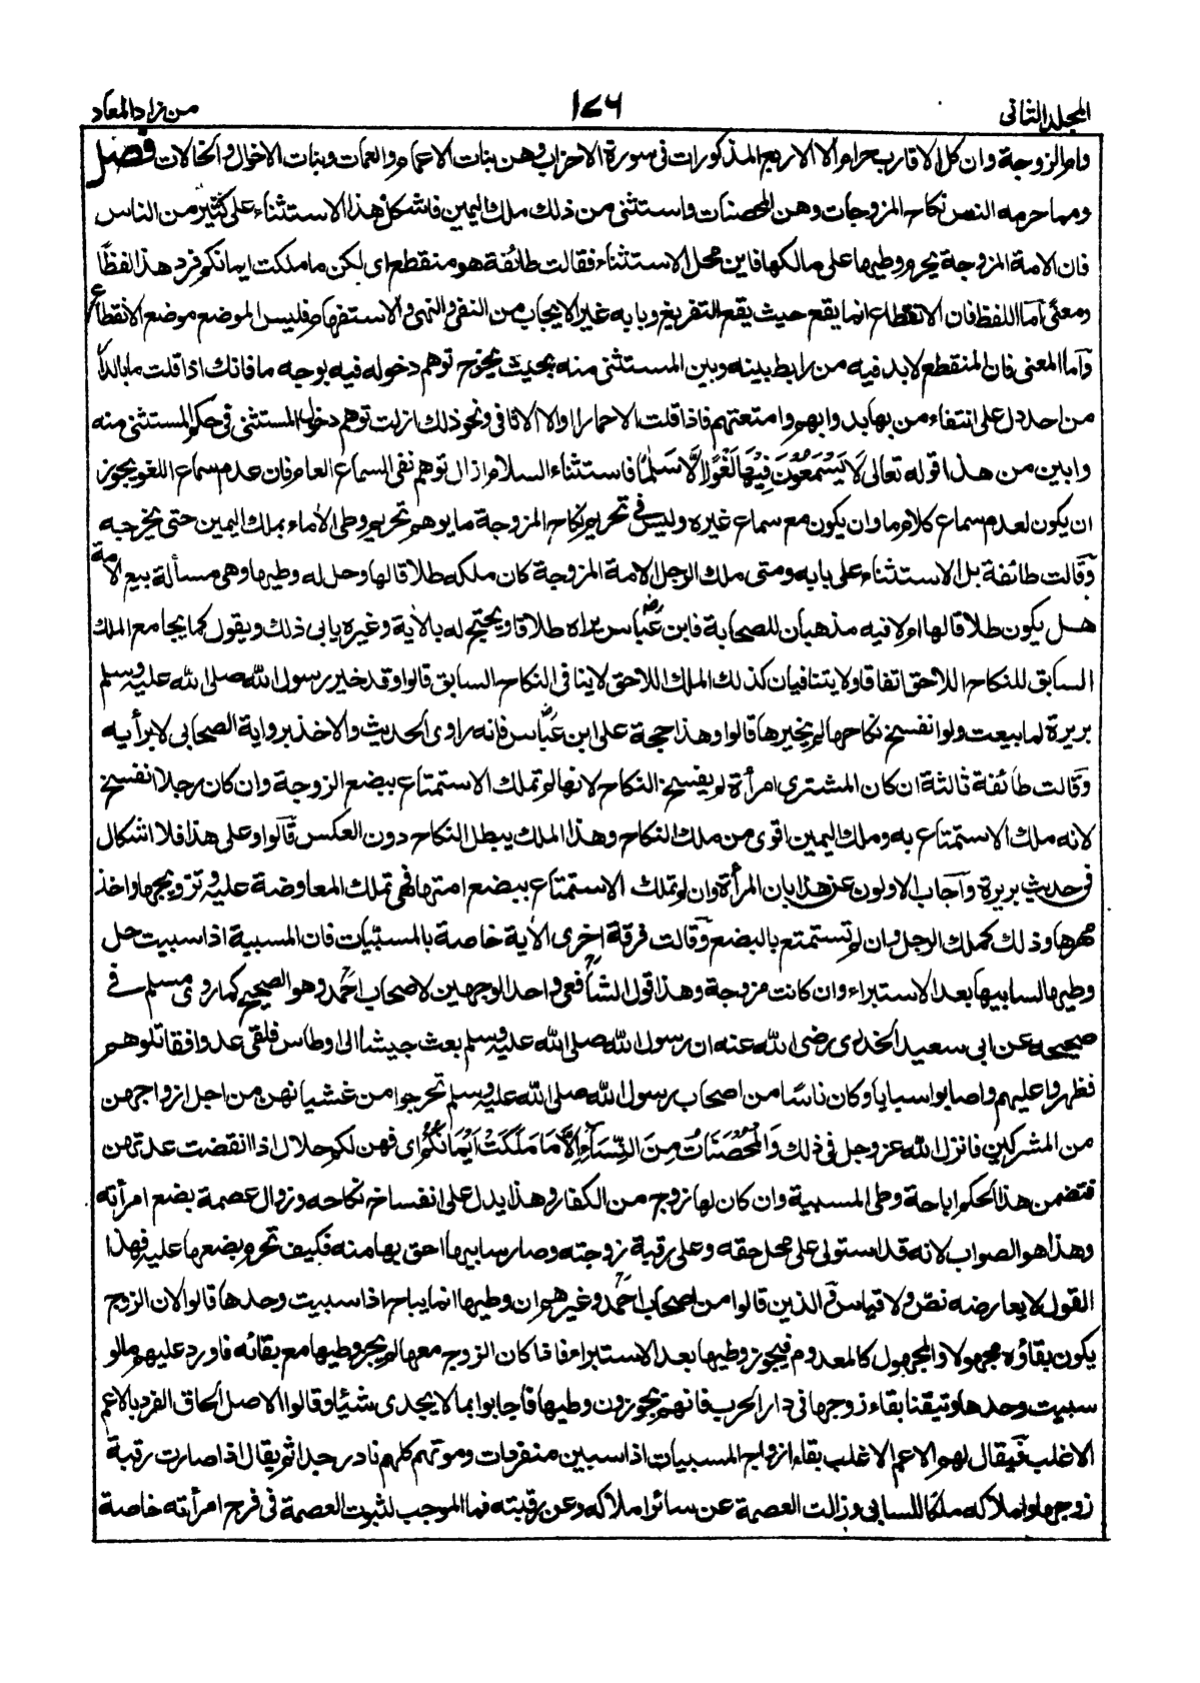 المجلد الثانى
١٧٦
من زاد المعاد
وام الزوجة وان كل الاقارب حرام الا الاربع المذكورات فى سورة الاحزاب وهن بنات الاعمام والعمات وبنات الاخوال والخالات فصل
ومما حرمه النص نكاح المزوجات وهن المحصنات واستثنى من ذلك ملك اليمين فاشكل هذا الاستثناء على كثير من الناس
فان الامة المزوجة يحرم وطيها على مالكها فاين محل الاستثناء فقالت طائفة هو منقطع اى لكن ما ملكت ايمانكم ورد هذا لفظًا
ومعنًى آما اللفظ فان الانقطاع انما يقع حيث يقع التفريغ وبابه غير الايجاب من النفى والنهى والاستفهام فليس الموضع موضع الانقطاع
وآما المعنى فان المنقطع لابد فيه من رابط بينه وبين المستثنى منه بحيث يخرج توهم دخوله فيه بوجه ما فانك اذا قلت ما بالدار
من احد دل على انتفاء من بها بدوابهم وامتعتهم فاذا قلت الا حمارا او الا الاثافى ونحو ذلك ازلت توهم دخول المستثنى فى حكم المستثنى منه
وابين من هذا قوله تعالى لَا يَسْمَعُوْنَ فِيْهَا لَغْوًا اِلَّا سَلٰمًا فاستثناء السلام ازال توهم نفى السماع العام فان عدم سماع اللغو يجوز
ان يكون لعدم سماع كلام ما وان يكون مع سماع غيره وليس فى تحريم نكاح المزوجة ما يوهم تحريم وطى الاماء بملك اليمين حتى يخرجه
وقالت طائفة بل الاستثناء على بابه ومتى ملك الرجل الامة المزوجة كان ملكه طلاقا لها وحل له وطيها وهى مسألة بيع الامة
هل يكون طلاقا لها ام لا فيه مذهبان للصحابة فابن عباس رض يراه طلاقا ويحتج له بالآية وغيره يابى ذلك ويقول كما يجامع الملك
السابق للنكاح اللاحق اتفاقا ولا يتنافيان كذلك الملك اللاحق لا ينافى النكاح السابق قالوا وقد خير رسول الله صلى الله عليه وسلم
بريرة لما بيعت ولو انفسخ نكاحها لم يخيرها قالوا وهذا حجة على ابن عباس رض فانه راوى الحديث والاخذ برواية الصحابى لا برأيه
وقالت طائفة ثالثة ان كان المشترى امرأة لم يفسخ النكاح لانها لم تملك الاستمتاع ببضع الزوجة وان كان رجلا انفسخ
لانه ملك الاستمتاع به وملك اليمين اقوى من ملك النكاح وهذا الملك يبطل النكاح دون العكس قالوا وعلى هذا فلا اشكال
فى حديث بريرة وآجاب الاولون عن هذا بان المرأة وان لم تملك الاستمتاع ببضع امتها فهى تملك المعاوضة عليه وتزويجها واخذ
مهرها وذلك كملك الرجل وان لم تستمتع بالبضع وقالت فرقة اخرى الآية خاصة بالمسبيات فان المسبية اذا سبيت حل
وطيها لسابيها بعد الاستبراء وان كانت مزوجة وهذا قول الشافعى رح واحد الوجهين لاصحاب احمد رح وهو الصحيح كما روى مسلم فى
صحيحه عن ابى سعيد الخدرى رضى الله عنه ان رسول الله صلى الله عليه وسلم بعث جيشا الى اوطاس فلقى عدوا فقاتلوهم
فظهروا عليهم واصابوا سبايا وكان ناسًا من اصحاب رسول الله صلى الله عليه وسلم تحرجوا من غشيانهن من اجل ازواجهن
من المشركين فانزل الله عز وجل فى ذلك وَالْمُحْصَنَاتُ مِنَ النِّسَآءِ اِلَّا مَا مَلَكَتْ اَيْمَانُكُمْ اى فهن لكم حلال اذا انقضت عدتهن
فتضمن هذا الحكم اباحة وطى المسبية وان كان لها زوج من الكفار وهذا يدل على انفساخ نكاحه وزوال عصمة بضع امرأته
وهذا هو الصواب لانه قد استولى على محل حقه وعلى رقبة زوجته وصار سابيها احق بها منه فكيف تحرم بضعها عليه فهذا
القول لا يعارضه نص ولا قياس و الذين قالوا من اصحاب احمد رح وغيرهم ان وطيها انما يباح اذا سبيت وحدها قالوا لان الزوج
يكون بقاؤه مجهولا والمجهول كالمعدوم فيجوز وطيها بعد الاستبراء فاذا كان الزوج معها لم يجز وطيها مع بقائه فاورد عليهم مالو
سبيت وحدها وتيقنا بقاء زوجها فى دار الحرب فانهم يجوزون وطيها فاجابوا بما لا يجدى شيئا وقالوا الاصل الحاق الفرد بالاعم
الاغلب فيقال لهم الاعم الاغلب بقاء ازواج المسبيات اذا سبين منفردات وموتهم كلهم نادر جدا ثم يقال اذا صارت رقبة
زوجها واملاكه ملكا للسابى وزالت العصمة عن سائر املاكه وعن رقبته فما الموجب لثبوت العصمة فى فرج امرأته خاصة